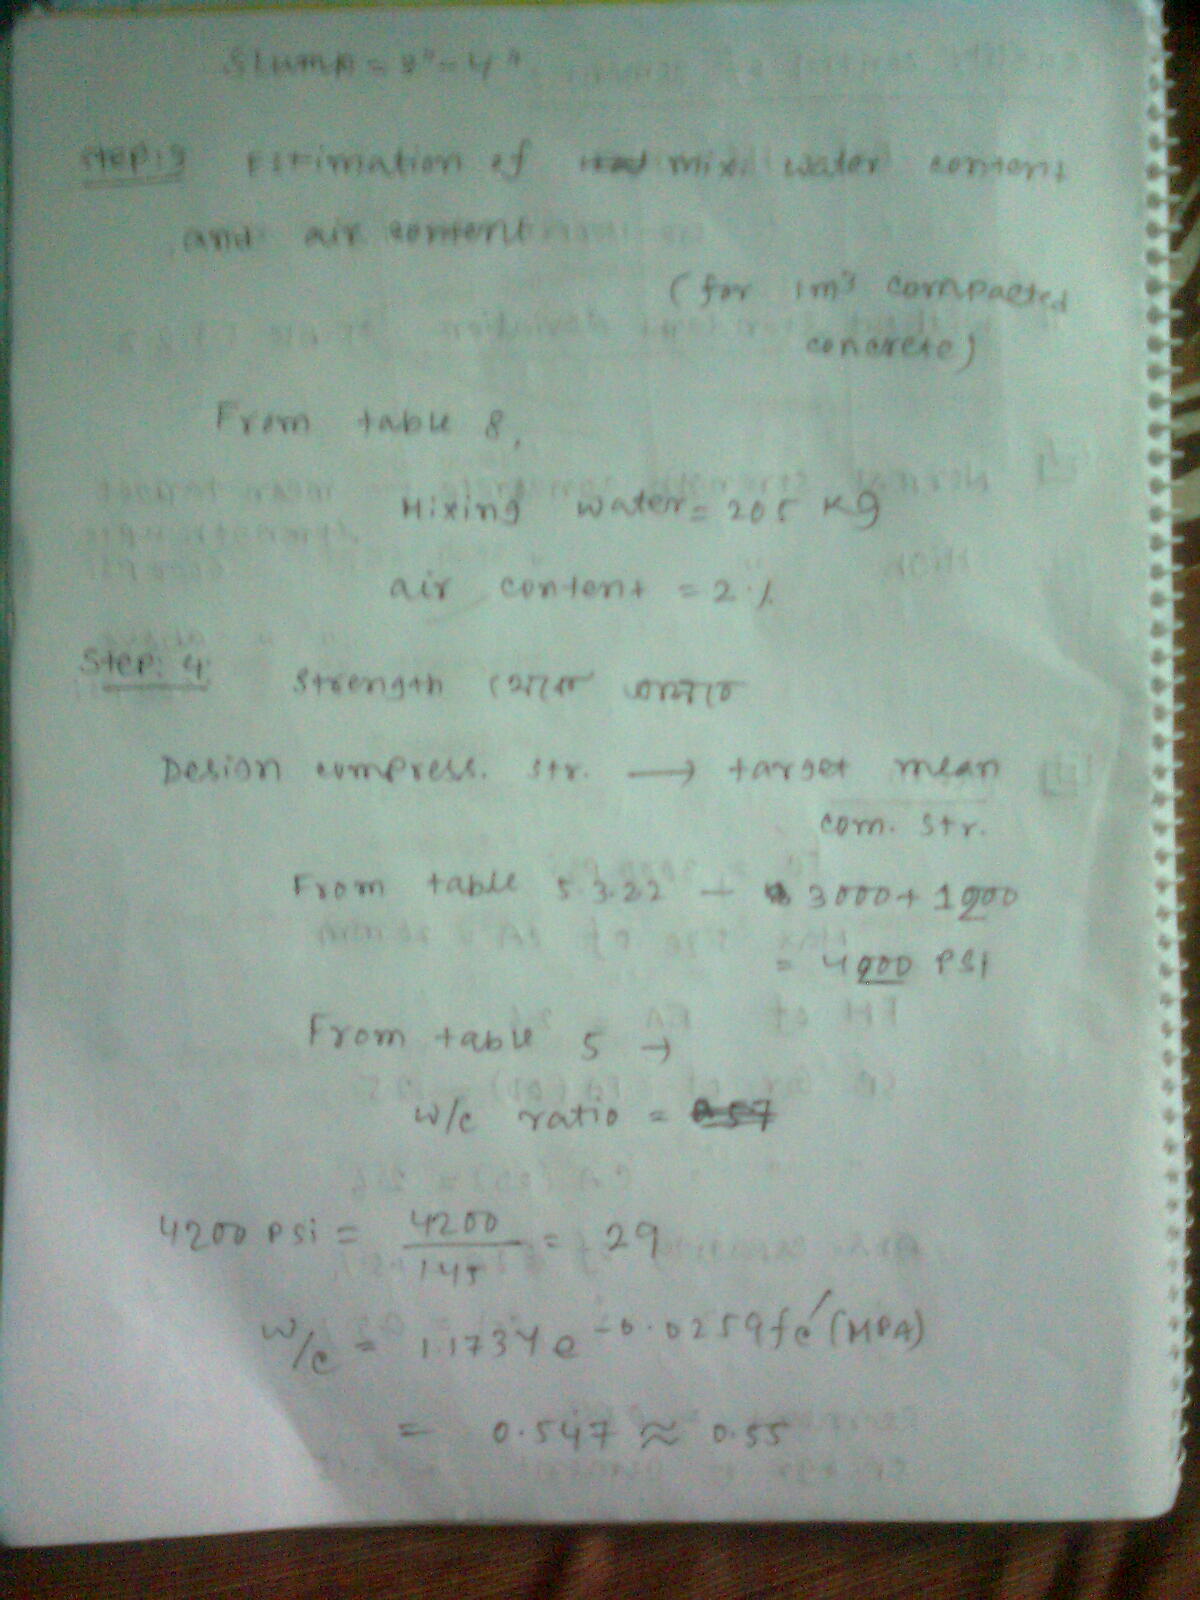 Slump = 3" - 4"
Step: 3 Estimation of mix. water content
and air content
(for 1m³ compacted
concrete)
From table 8,
Mixing water = 205 Kg
air content = 2%
Step: 4 Strength
Design compress. str. → target mean
com. str.
From table 5.3.22 → 3000 + 1200
= 4200 PSI
From table 5 →
w/c ratio = 0.57
4200 psi = 4200/145 = 29
w/c = 1.1734 e^-0.0259fc' (MPA)
= 0.547 ≈ 0.55